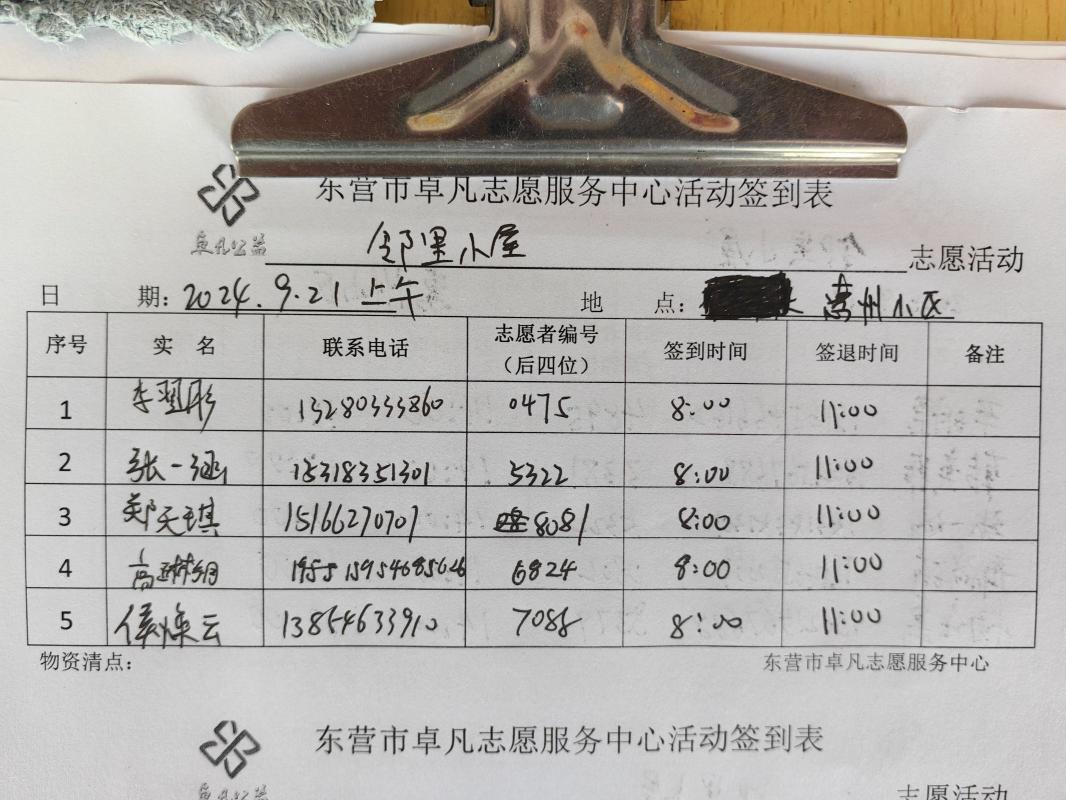 东营市卓凡志愿服务中心活动签到表
卓凡公益 邻里小屋 志愿活动
日 期：2024.9.21上午 地 点： 小区
序号 实 名 联系电话 志愿者编号（后四位） 签到时间 签退时间 备注
1 李翌彤 13280333860 0475 8:00 11:00
2 张一涵 15318351301 5322 8:00 11:00
3 郑天琪 15166270707 8081 8:00 11:00
4 高 6824 8:00 11:00
5 侯焕云 13854633910 7088 8:00 11:00
物资清点： 东营市卓凡志愿服务中心
东营市卓凡志愿服务中心活动签到表
卓凡公益 志愿活动